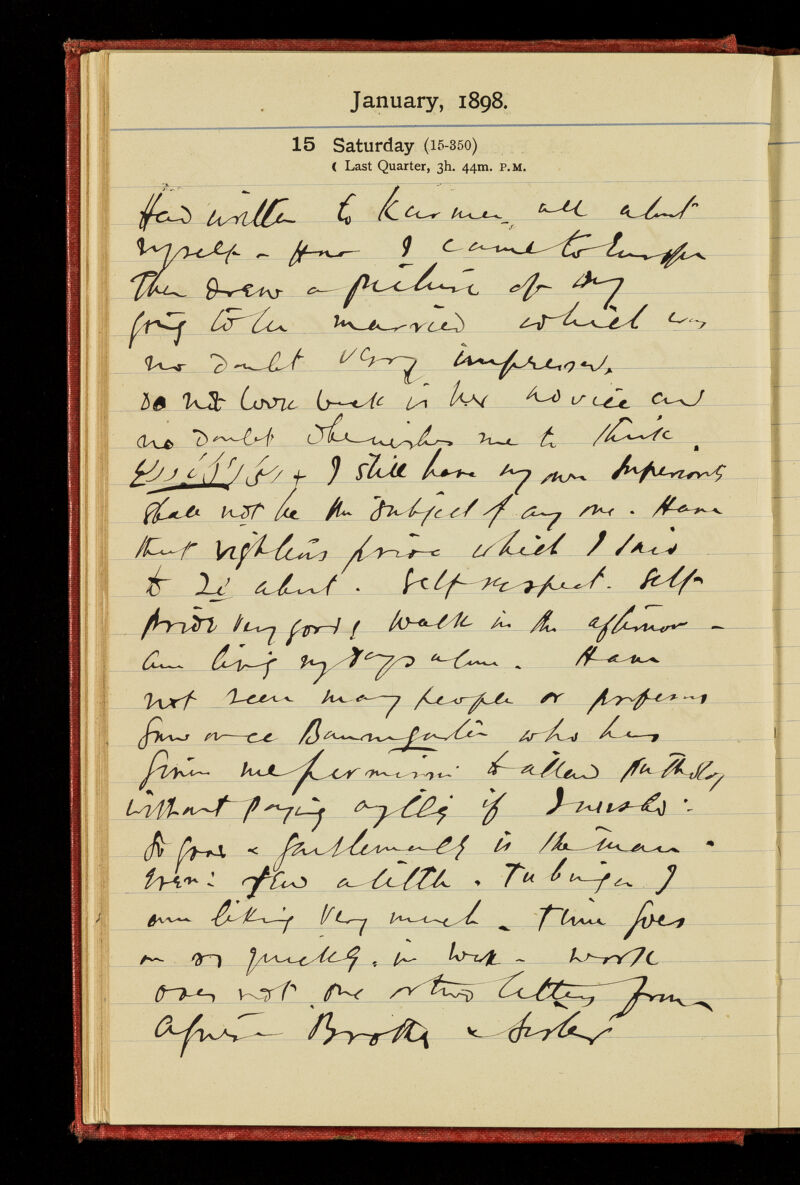 January, 1898.
15 Saturday (15-350)
☾ Last Quarter, 3h. 44m. P.M.
Had written to all about
myself - How I came to Europe
Then drew a picture of my
going to be married which was
no doubt very
Do not look back in her advice and
no doubt she wishes me to think
I still have my own
shall not be the subject of any one. Have
that righteous pride which I
to about. Self respect. Self
pride very good; walk in the afternoon -
Am living my days alone. Have
not seen many people or
Saw once Baumgarten who has
given me permission to attend Pathology
without paying anything if I wished.
So good & gentlemanly is the man.
a little. Tubingen I
am liking very much. Time goes
on so quickly. in work - work
does not one or two letters from
Brother & Sister